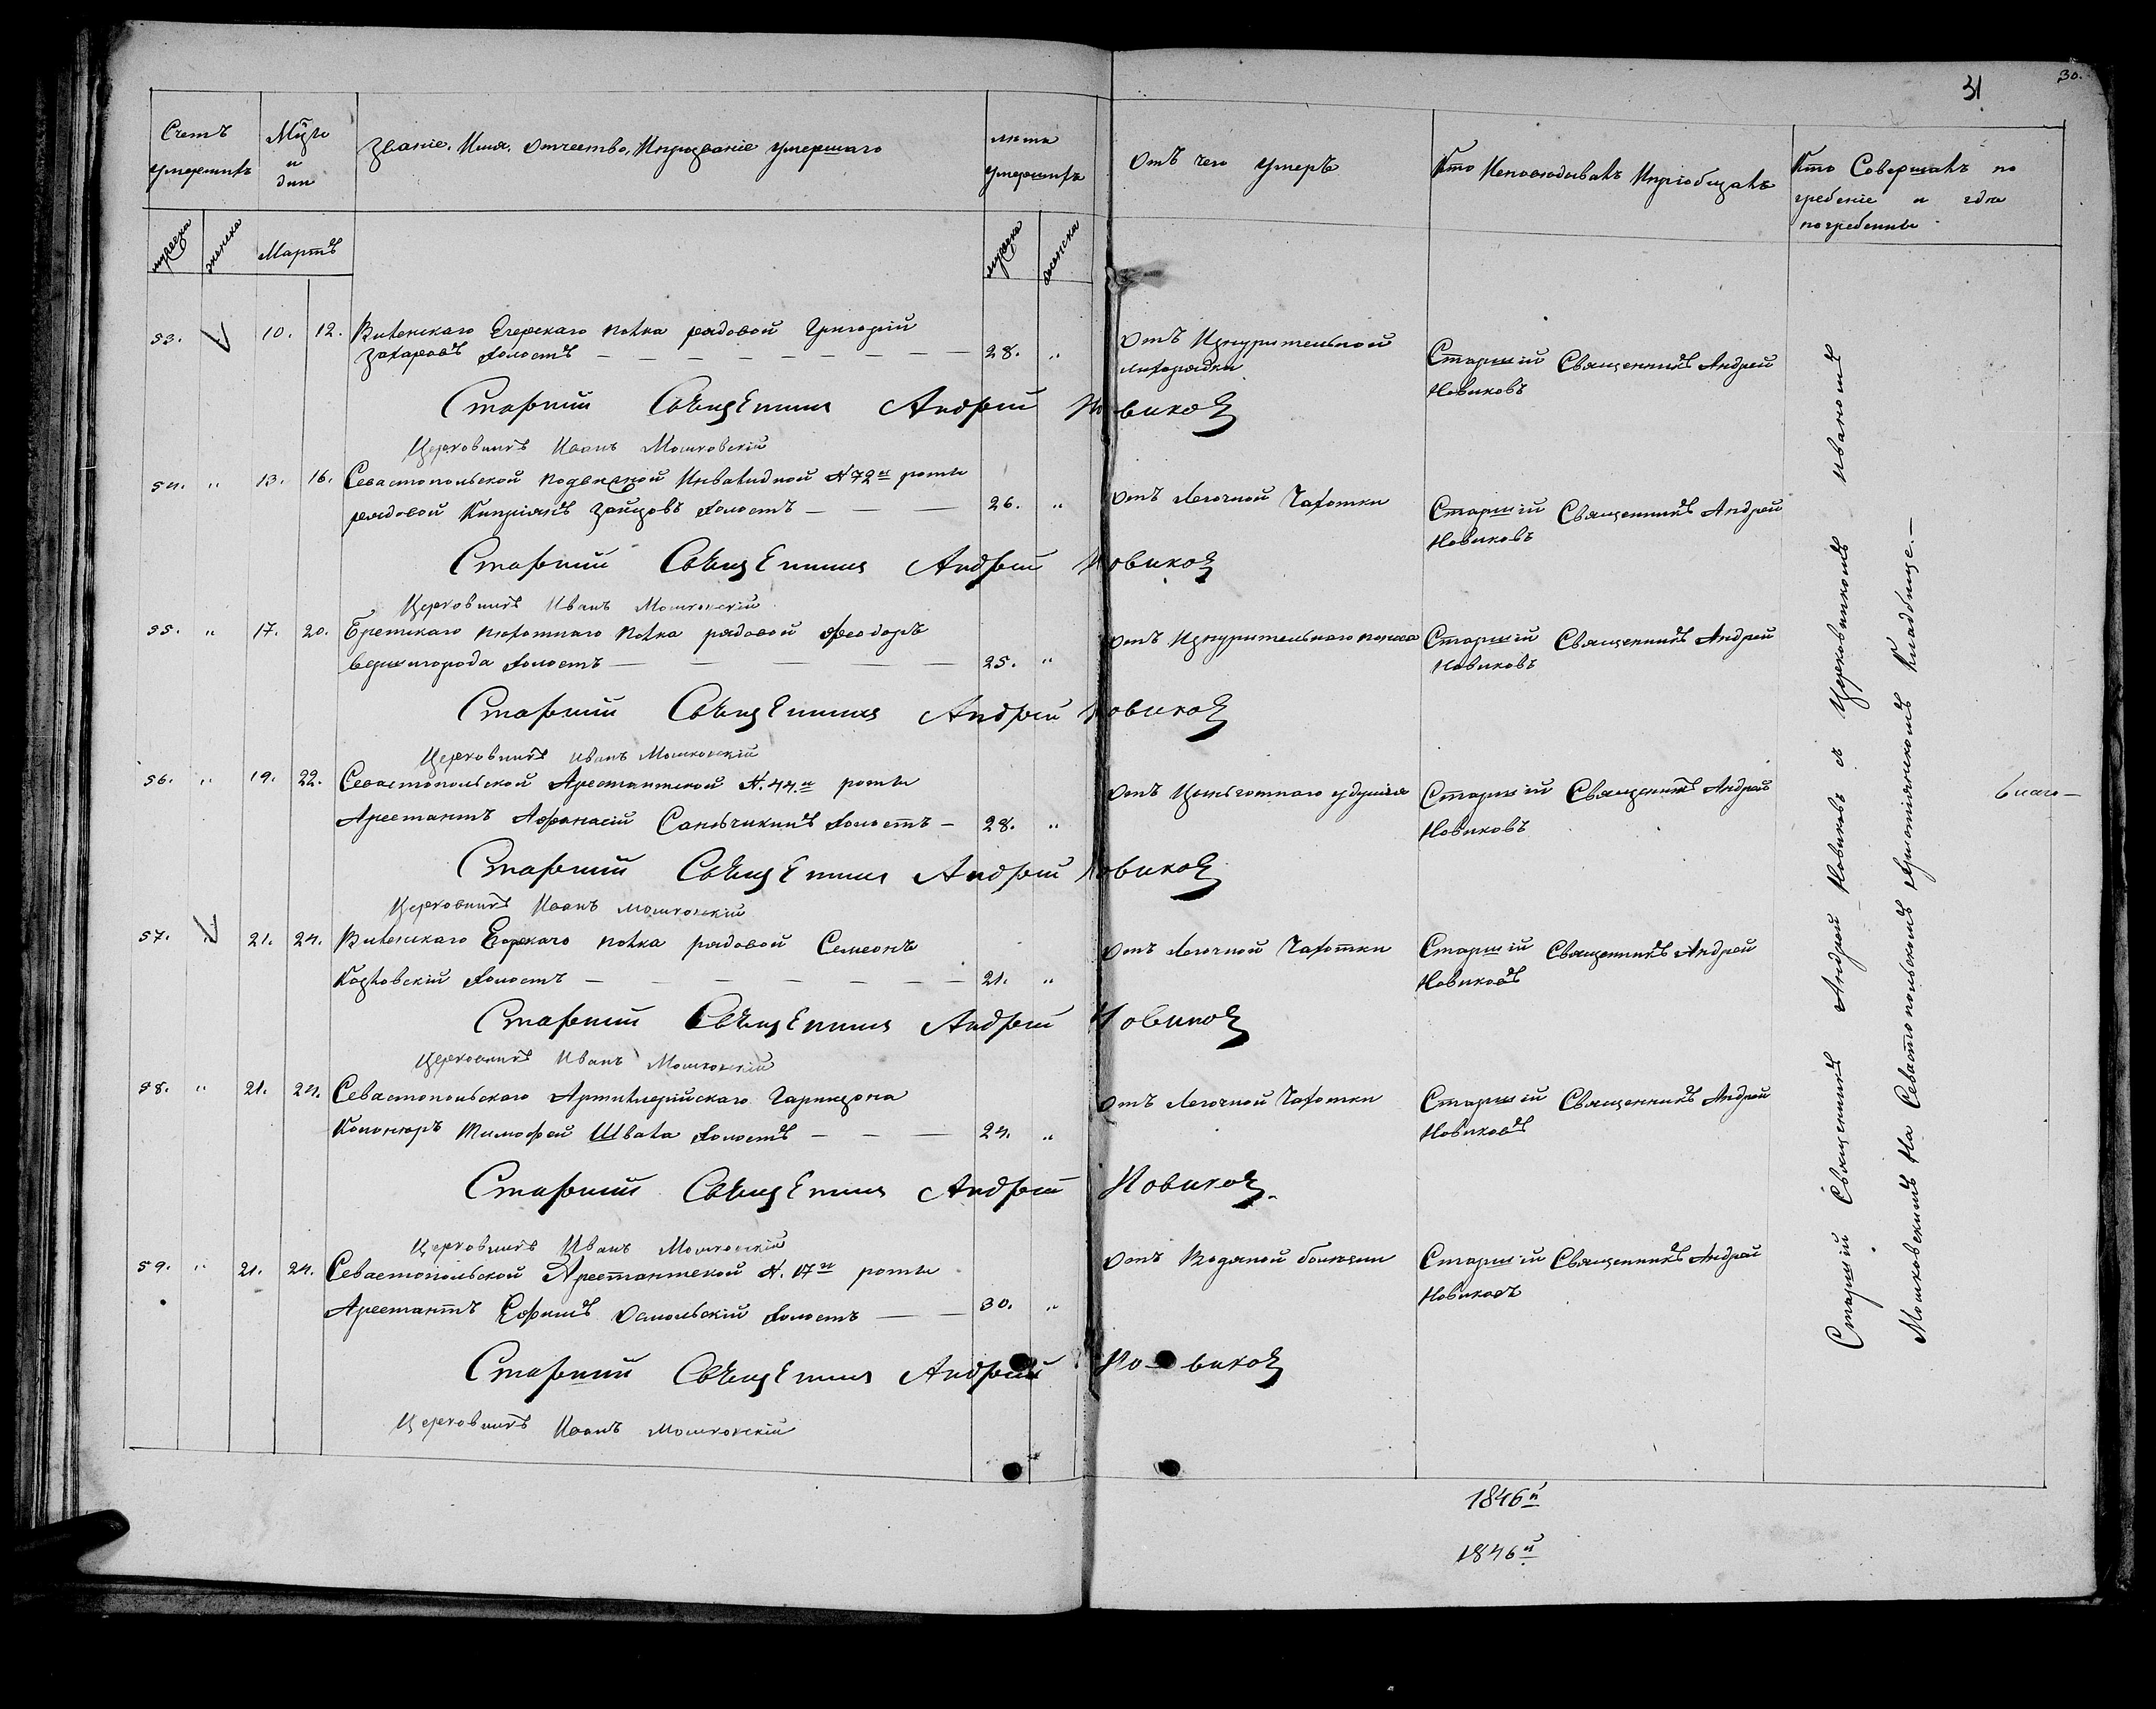 31
30.
Счетъ умершихъ
Мѣсяц и дни
Званіе, Имя, Отчество, И прозваніе умершаго
лѣта умершихъ
Отъ чего умеръ
Кто Исповѣдывалъ И пріобщалъ
Кто Совершалъ погребеніе и гдѣ погребенны
мужеска
женска
Мартъ
мужеска
женска
53. 10. 12. Виленскаго Егерскаго полка рядовой Григорій
Захаровъ холостъ — 28. "
Отъ Изнурительной
лихорадки
Старшій Священникъ Андрей
Новиковъ
Старший Священник Андрей Новиков
Церковникъ Иванъ Мошковскій
54. " 13. 16. Севастопольской подвижной Инвалидной № 72й роты
рядовой Кипріянъ Зайцовъ холостъ — 26. "
Отъ Легочной Чахотки
Старшій Священникъ Андрей
Новиковъ
Старший Священник Андрей Новиков
Церковникъ Иванъ Мошковскій
55. " 17. 20. Брестскаго пѣхотнаго полка рядовой Феодоръ
Вернигорода холостъ — 25. "
Отъ Изнурительнаго поноса
Старшій Священникъ Андрей
Новиковъ
Старший Священник Андрей Новиков
Церковникъ Иванъ Мошковскій
56. " 19. 22. Севастопольской Арестантской № 44й роты
Арестантъ Афанасій Саньчикинъ холостъ — 28. "
Отъ Цынготнаго удушія
Старшій Священникъ Андрей
Новиковъ
Старший Священник Андрей Новиков
Церковникъ Иванъ Мошковскій
57. 21. 24. Виленскаго Егерскаго полка рядовой Семеонъ
Козловскій холостъ — 21. "
Отъ Легочной Чахотки
Старшій Священникъ Андрей
Новиковъ
Старший Священник Андрей Новиков
Церковникъ Иванъ Мошковскій
58. " 21. 24. Севастопольскаго Артиллерійскаго Гарнизона
Канониръ Тимофей Швала холостъ — 24. "
Отъ Легочной Чахотки
Старшій Священникъ Андрей
Новиковъ
Старший Священник Андрей Новиков.
Церковникъ Иванъ Мошковскій
59. " 21. 24. Севастопольской Арестантской № 17й роты
Арестантъ Ефимъ Осмольскій холостъ — 30. "
Отъ Водяной болѣзни
Старшій Священникъ Андрей
Новиковъ
Старший Священник Андрей Новиков
Церковникъ Иванъ Мошковскій
Старшій Священникъ Андрей Новиковъ съ Церковникомъ Иваномъ
Мошковскимъ На Севастопольскомъ Христіянскомъ Кладбище.—
1846й
1846й